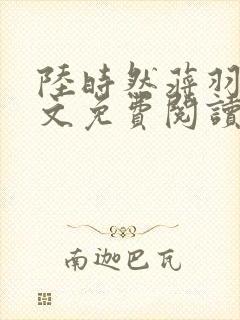 陸時然蔣羽
文免費閱讀
南迦巴瓦